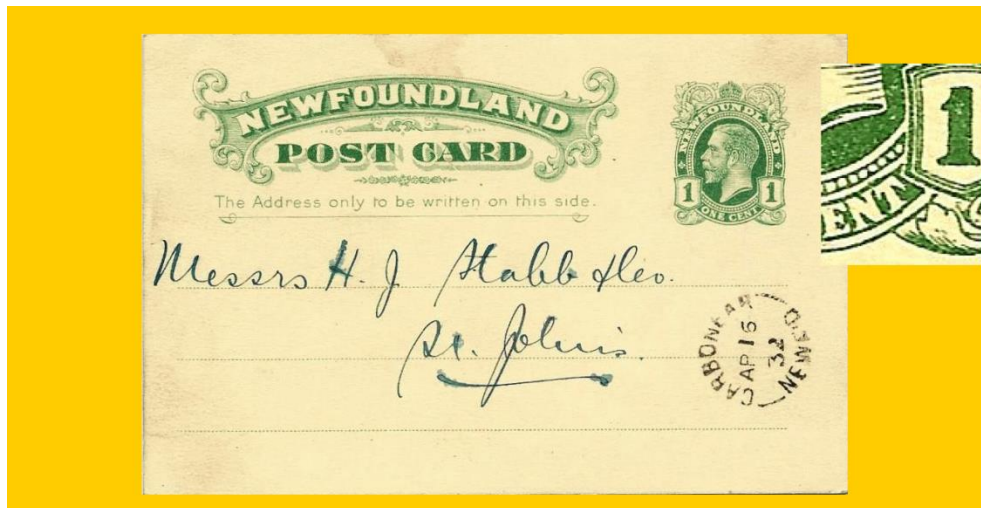 NEWFOUNDLAND
POST CARD
The Address only to be written on this side.
NEWFOUNDLAND
1 1
ONE CENT
Messrs H. J. Stabb & Co.
St. John's.
CARBONEAR
AP 16
32
NEWF'D
1
ENT